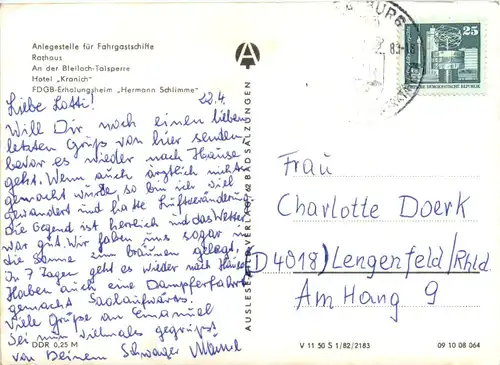 Anlegestelle für Fahrgastschiffe
Rathaus
An der Bleiloch-Talsperre
Hotel „Kranich"
FDGB-Erholungsheim „Hermann Schlimme"
Liebe Lotti! 22.4.
Will Dir noch einen lieben
letzten Gruß von hier senden
bevor es wieder nach Hause
geht. Wenn auch ärztlich nichts
gemacht wurde so bin ich viel
gewandert und hatte Luftveränderung
die Gegend ist herrlich und das Wetter
war gut. Wir haben uns sogar in
die Sonne zum bräunen gelegt.
In 7 Tagen geht es wieder nach Hause
Haben auch eine Dampferfahrt
gemacht Saalaufwärts.
Viele Grüße an Emanuel
Sei nun vielmals gegrüßt
von Deinem Schwager
DDR 0,25 M
AUSLESE-BILD-VERLAG, 62 BAD SALZUNGEN
A
BURG
25
DEUTSCHE DEMOKRATISCHE REPUBLIK
Frau
Charlotte Doerk
(D 4018) Lengenfeld/Rhld
Am Hang 9
V 11 50 S 1/82/2183
09 10 08 064